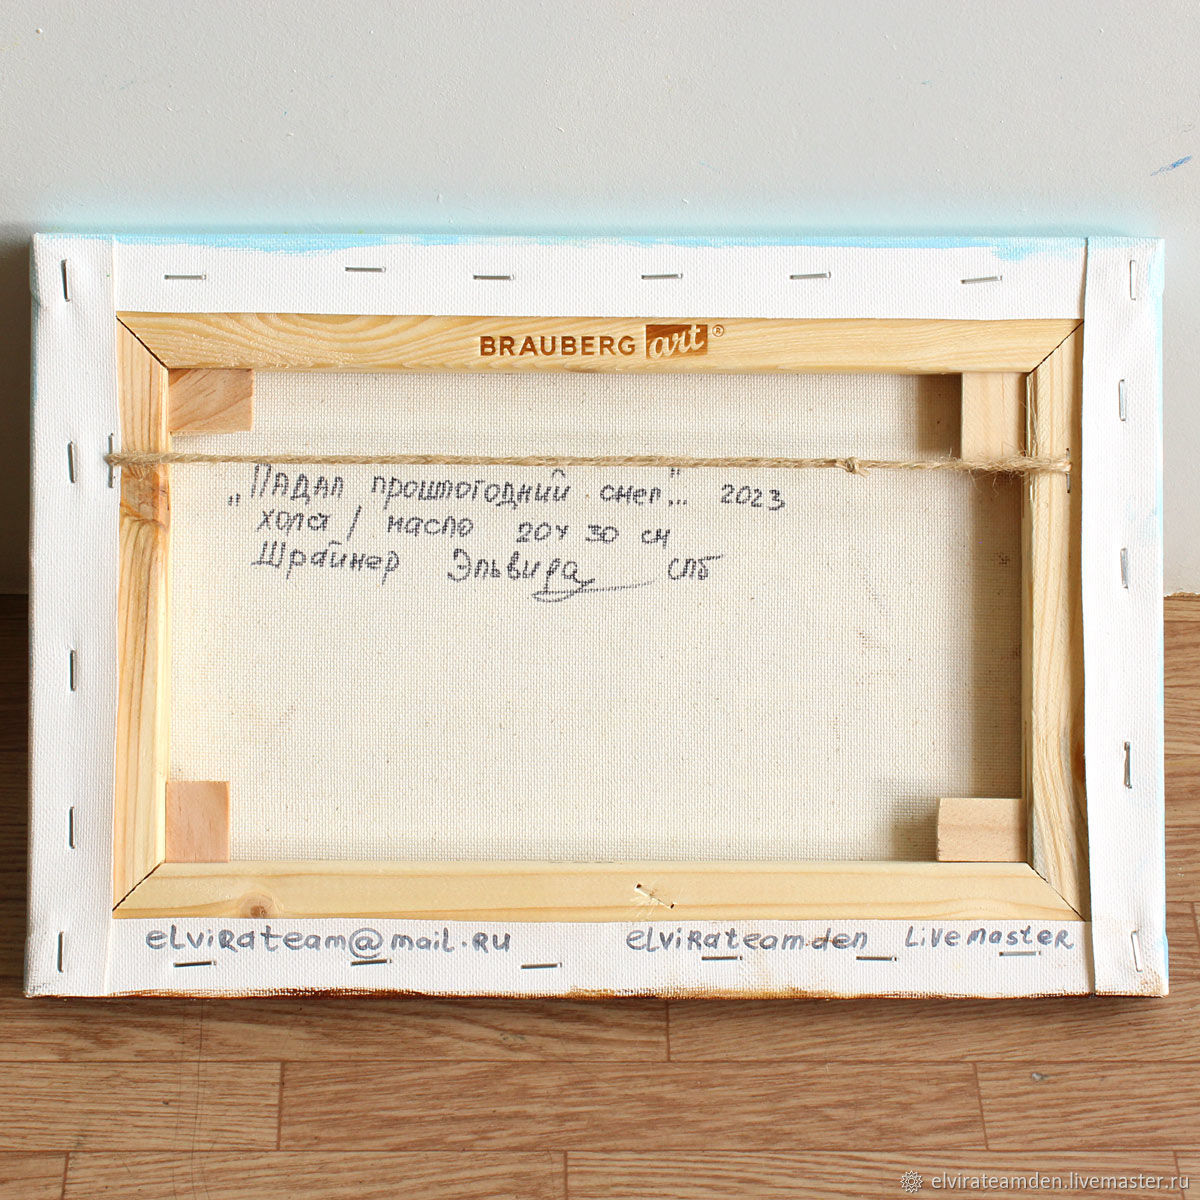 BRAUBERG art ®
„Падал прошлогодний снег"... 2023
холст / масло 20х30 см
Шрайнер Эльвира спб
elvirateam@mail.ru elvirateamden Livemaster
elvirateamden.livemaster.ru